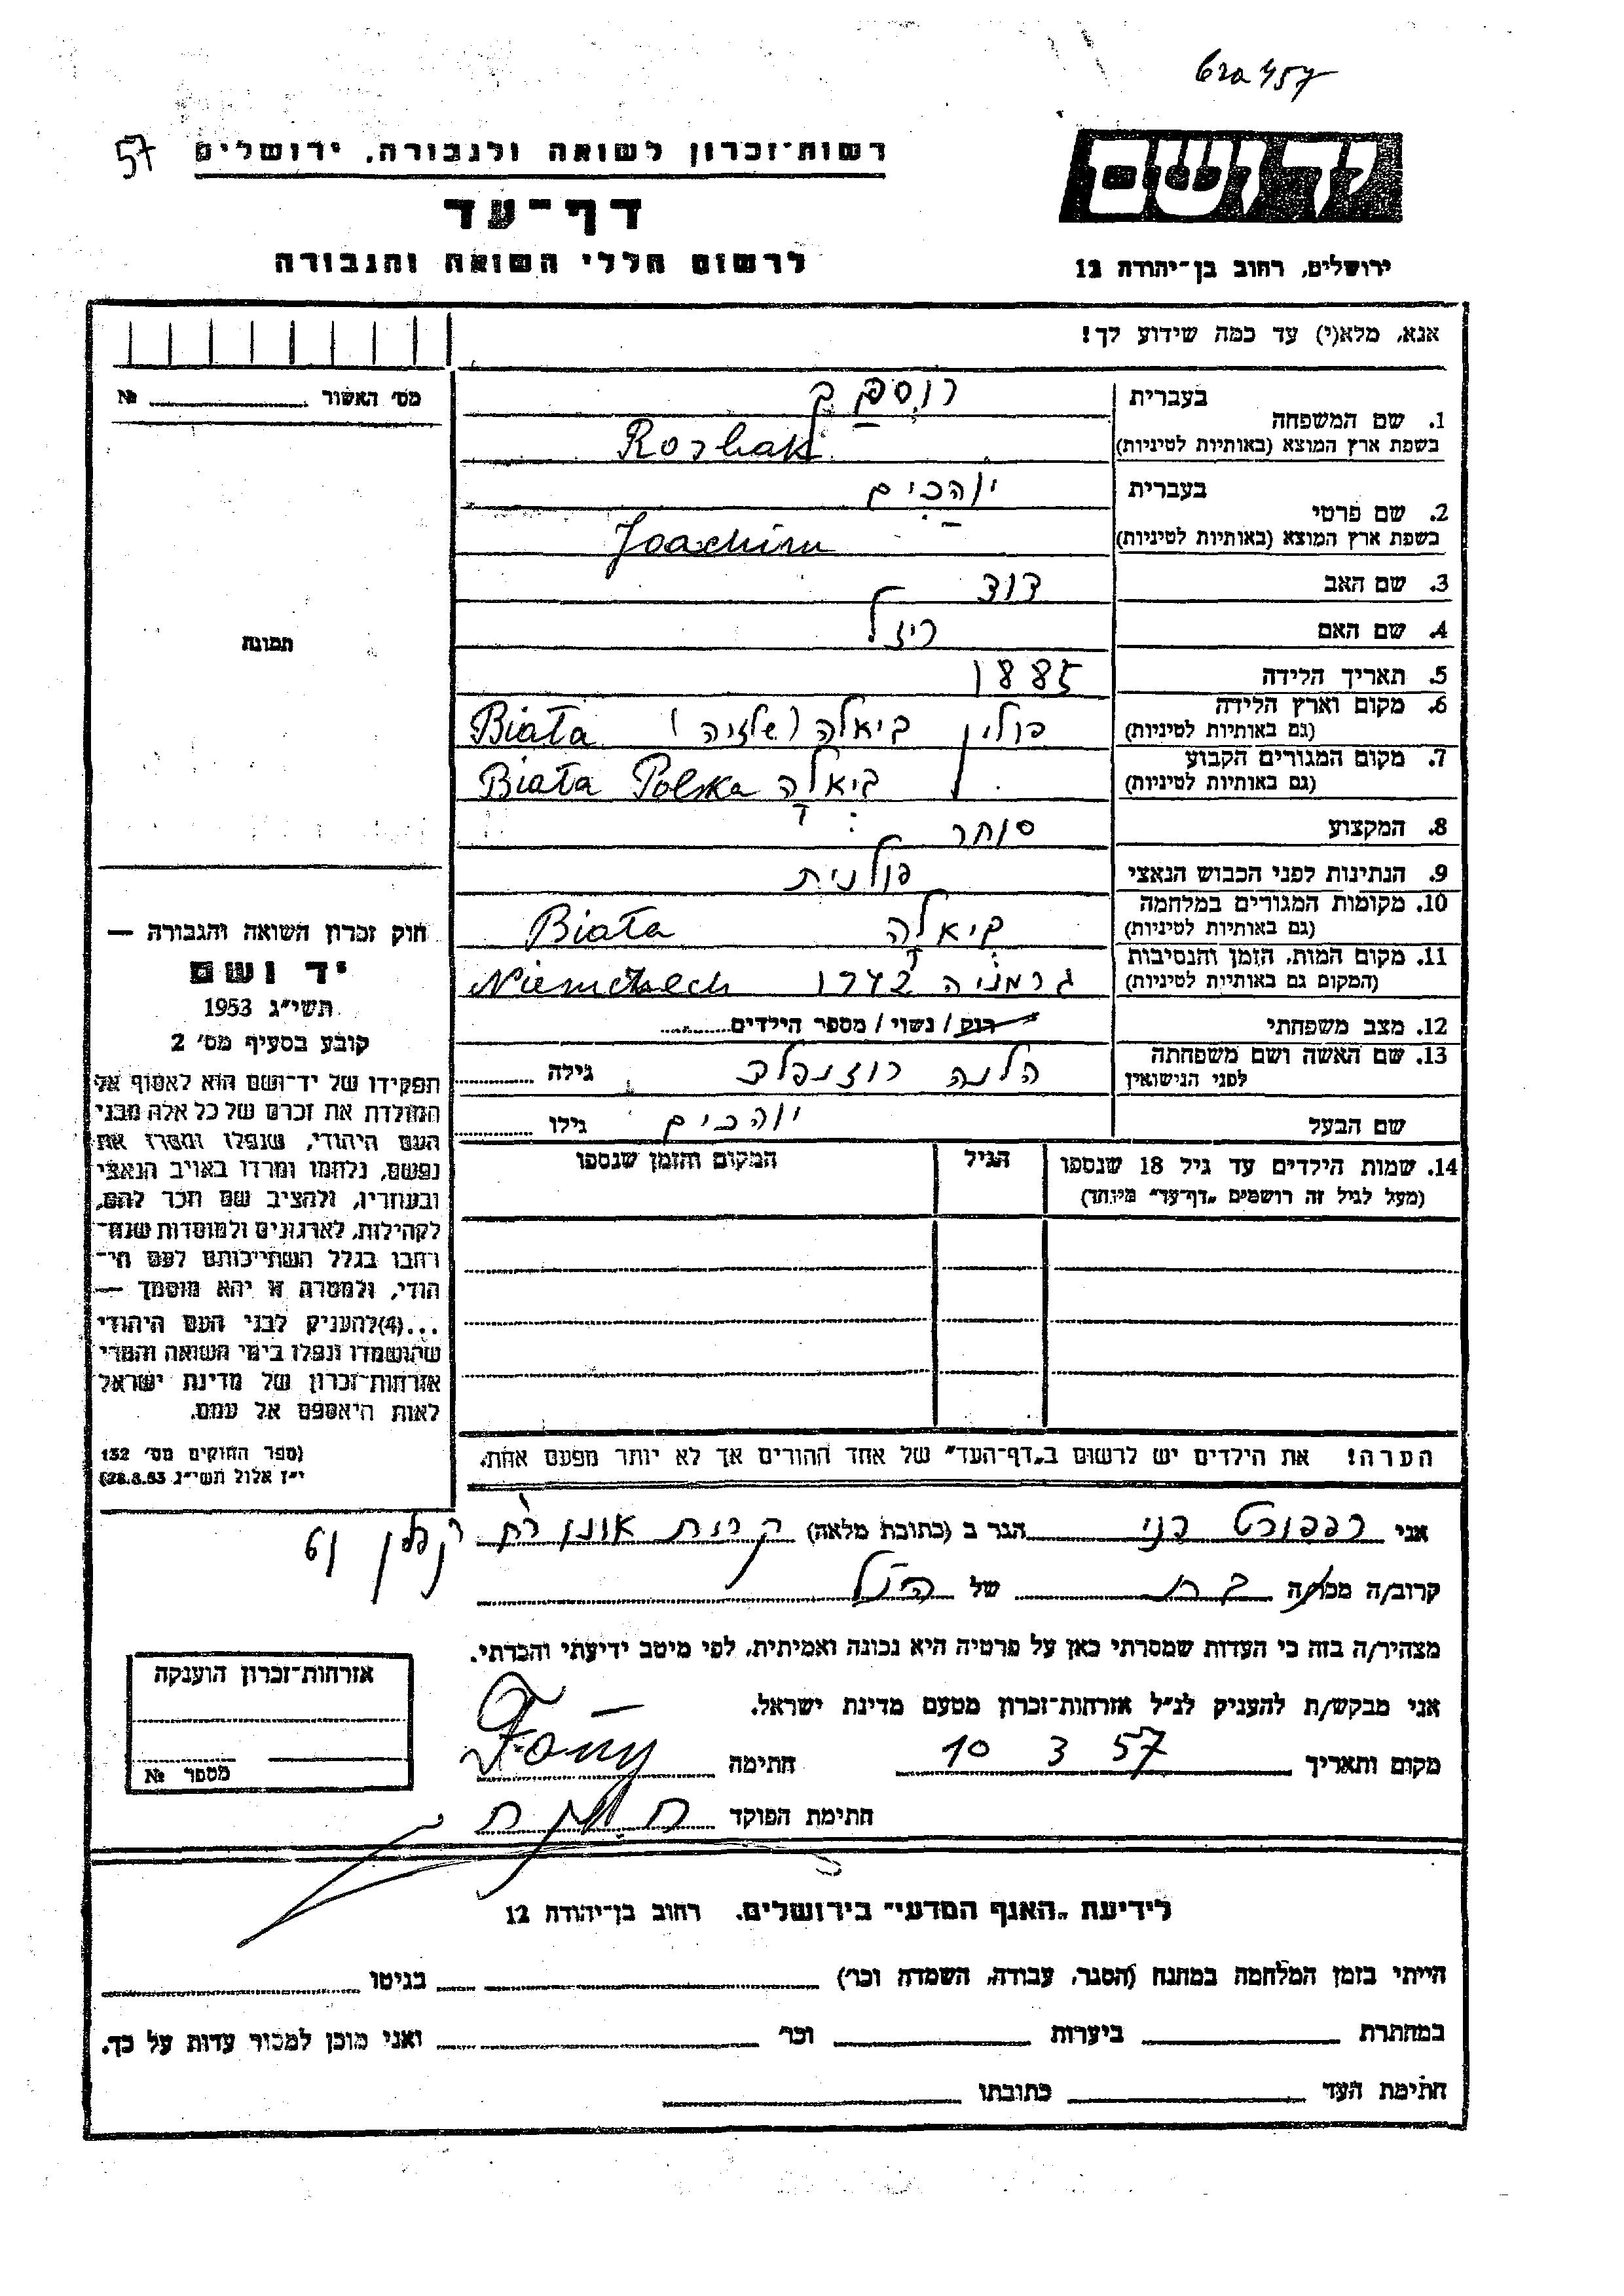 57
רשות־זכרון לשואה ולגבורה, ירושלים
דף־עד
לרשום חללי השואה והגבורה
יד ושם
ירושלים, רחוב בן־יהודה 12
אנא, מלא(י) עד כמה שידוע לך!
מס׳ האשור № 
תמונה
1. שם המשפחה
בעברית
בשפת ארץ המוצא (באותיות לטיניות)
2. שם פרטי
בעברית יוהכים
בשפת ארץ המוצא (באותיות לטיניות) Joachim
3. שם האב דוד
4. שם האם רייזל
5. תאריך הלידה 1885
6. מקום וארץ הלידה פולין ביאלה (שלזיה) Biała
(גם באותיות לטיניות)
7. מקום המגורים הקבוע ביאלה Biała Polska
(גם באותיות לטיניות)
8. המקצוע סוחר
9. הנתינות לפני הכבוש הנאצי פולנית
10. מקומות המגורים במלחמה ביאלה Biała
(גם באותיות לטיניות)
11. מקום המות, הזמן והנסיבות גרמניה 1942
(המקום גם באותיות לטיניות)
12. מצב משפחתי רוק/ נשוי/ מספר הילדים
13. שם האשה ושם משפחתה הלנה רוזנפלד גילה
לפני הנישואין
שם הבעל יוהכים גילו
14. שמות הילדים עד גיל 18 שנספו הגיל המקום והזמן שנספו
(מעל לגיל זה רושמים „דף־עד״ מיוחד)
הערה! את הילדים יש לרשום ב„דף־העד״ של אחד ההורים אך לא יותר מפעם אחת.
חוק זכרון השואה והגבורה —
יד ושם
תשי״ג 1953
קובע בסעיף מס׳ 2
תפקידו של יד־ושם הוא לאסוף אל
המולדת את זכרם של כל אלה מבני
העם היהודי, שנפלו ומסרו את
נפשם, נלחמו ומרדו באויב הנאצי
ובעוזריו, ולהציב שם וזכר להם,
לקהילות, לארגונים ולמוסדות שנח־
רחבו בגלל השתייכותם לעם הי־
הודי, ולמטרה זו יהא מוסמך —
...(4)להעניק לבני העם היהודי
שהושמדו ונפלו בימי השואה והמרי
אזרחות־זכרון של מדינת ישראל
לאות היאספם אל עמם.
(ספר החוקים מס׳ 132
י״ז אלול תשי״ג 28.8.53)
אני רפפורט הגר ב (כתובת מלאה) קרית אונו רח׳ קפלן
קרוב/ה מכר/ה בת של הנ״ל
מצהיר/ה בזה כי העדות שמסרתי כאן על פרטיה היא נכונה ואמיתית, לפי מיטב ידיעתי והכרתי.
אני מבקש/ת להעניק לנ״ל אזרחות־זכרון מטעם מדינת ישראל.
מקום ותאריך 10 3 57 חתימה
חתימת הפוקד
אזרחות־זכרון הוענקה
מספר №
לידיעת „האגף המדעי״ בירושלים. רחוב בן־יהודה 12
הייתי בזמן המלחמה במחנה (הסגר, עבודה, השמדה וכו׳) בגיטו
במחתרת ביערות וכו׳ ואני מוכן למסור עדות על כך.
חתימת העד כתובתו